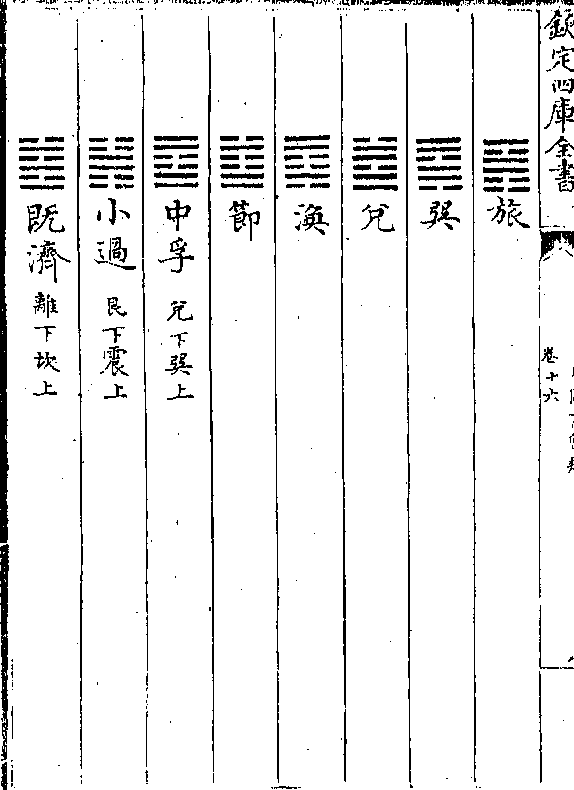 欽定四庫全書
卷十六
旅
巽
兌
渙
節
中孚 兌下巽上
小過 艮下震上
既濟 離下坎上